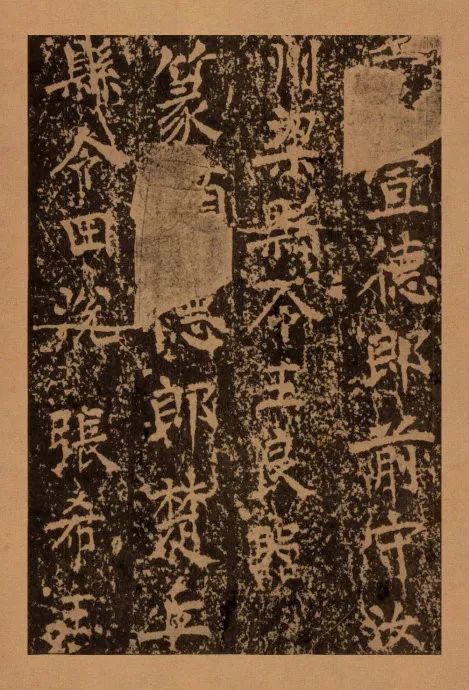 宣德郎前守汝
州梁縣令王良弼
篆 宣德郎楚丘
縣令田沇張希